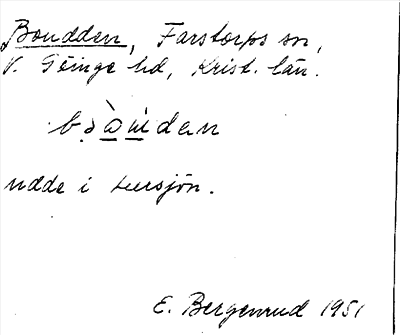 Boudden, Farstorps sn,
V. Göinge hd, Krist. län.
udde i Lursjön.
E. Bergenrud 1951